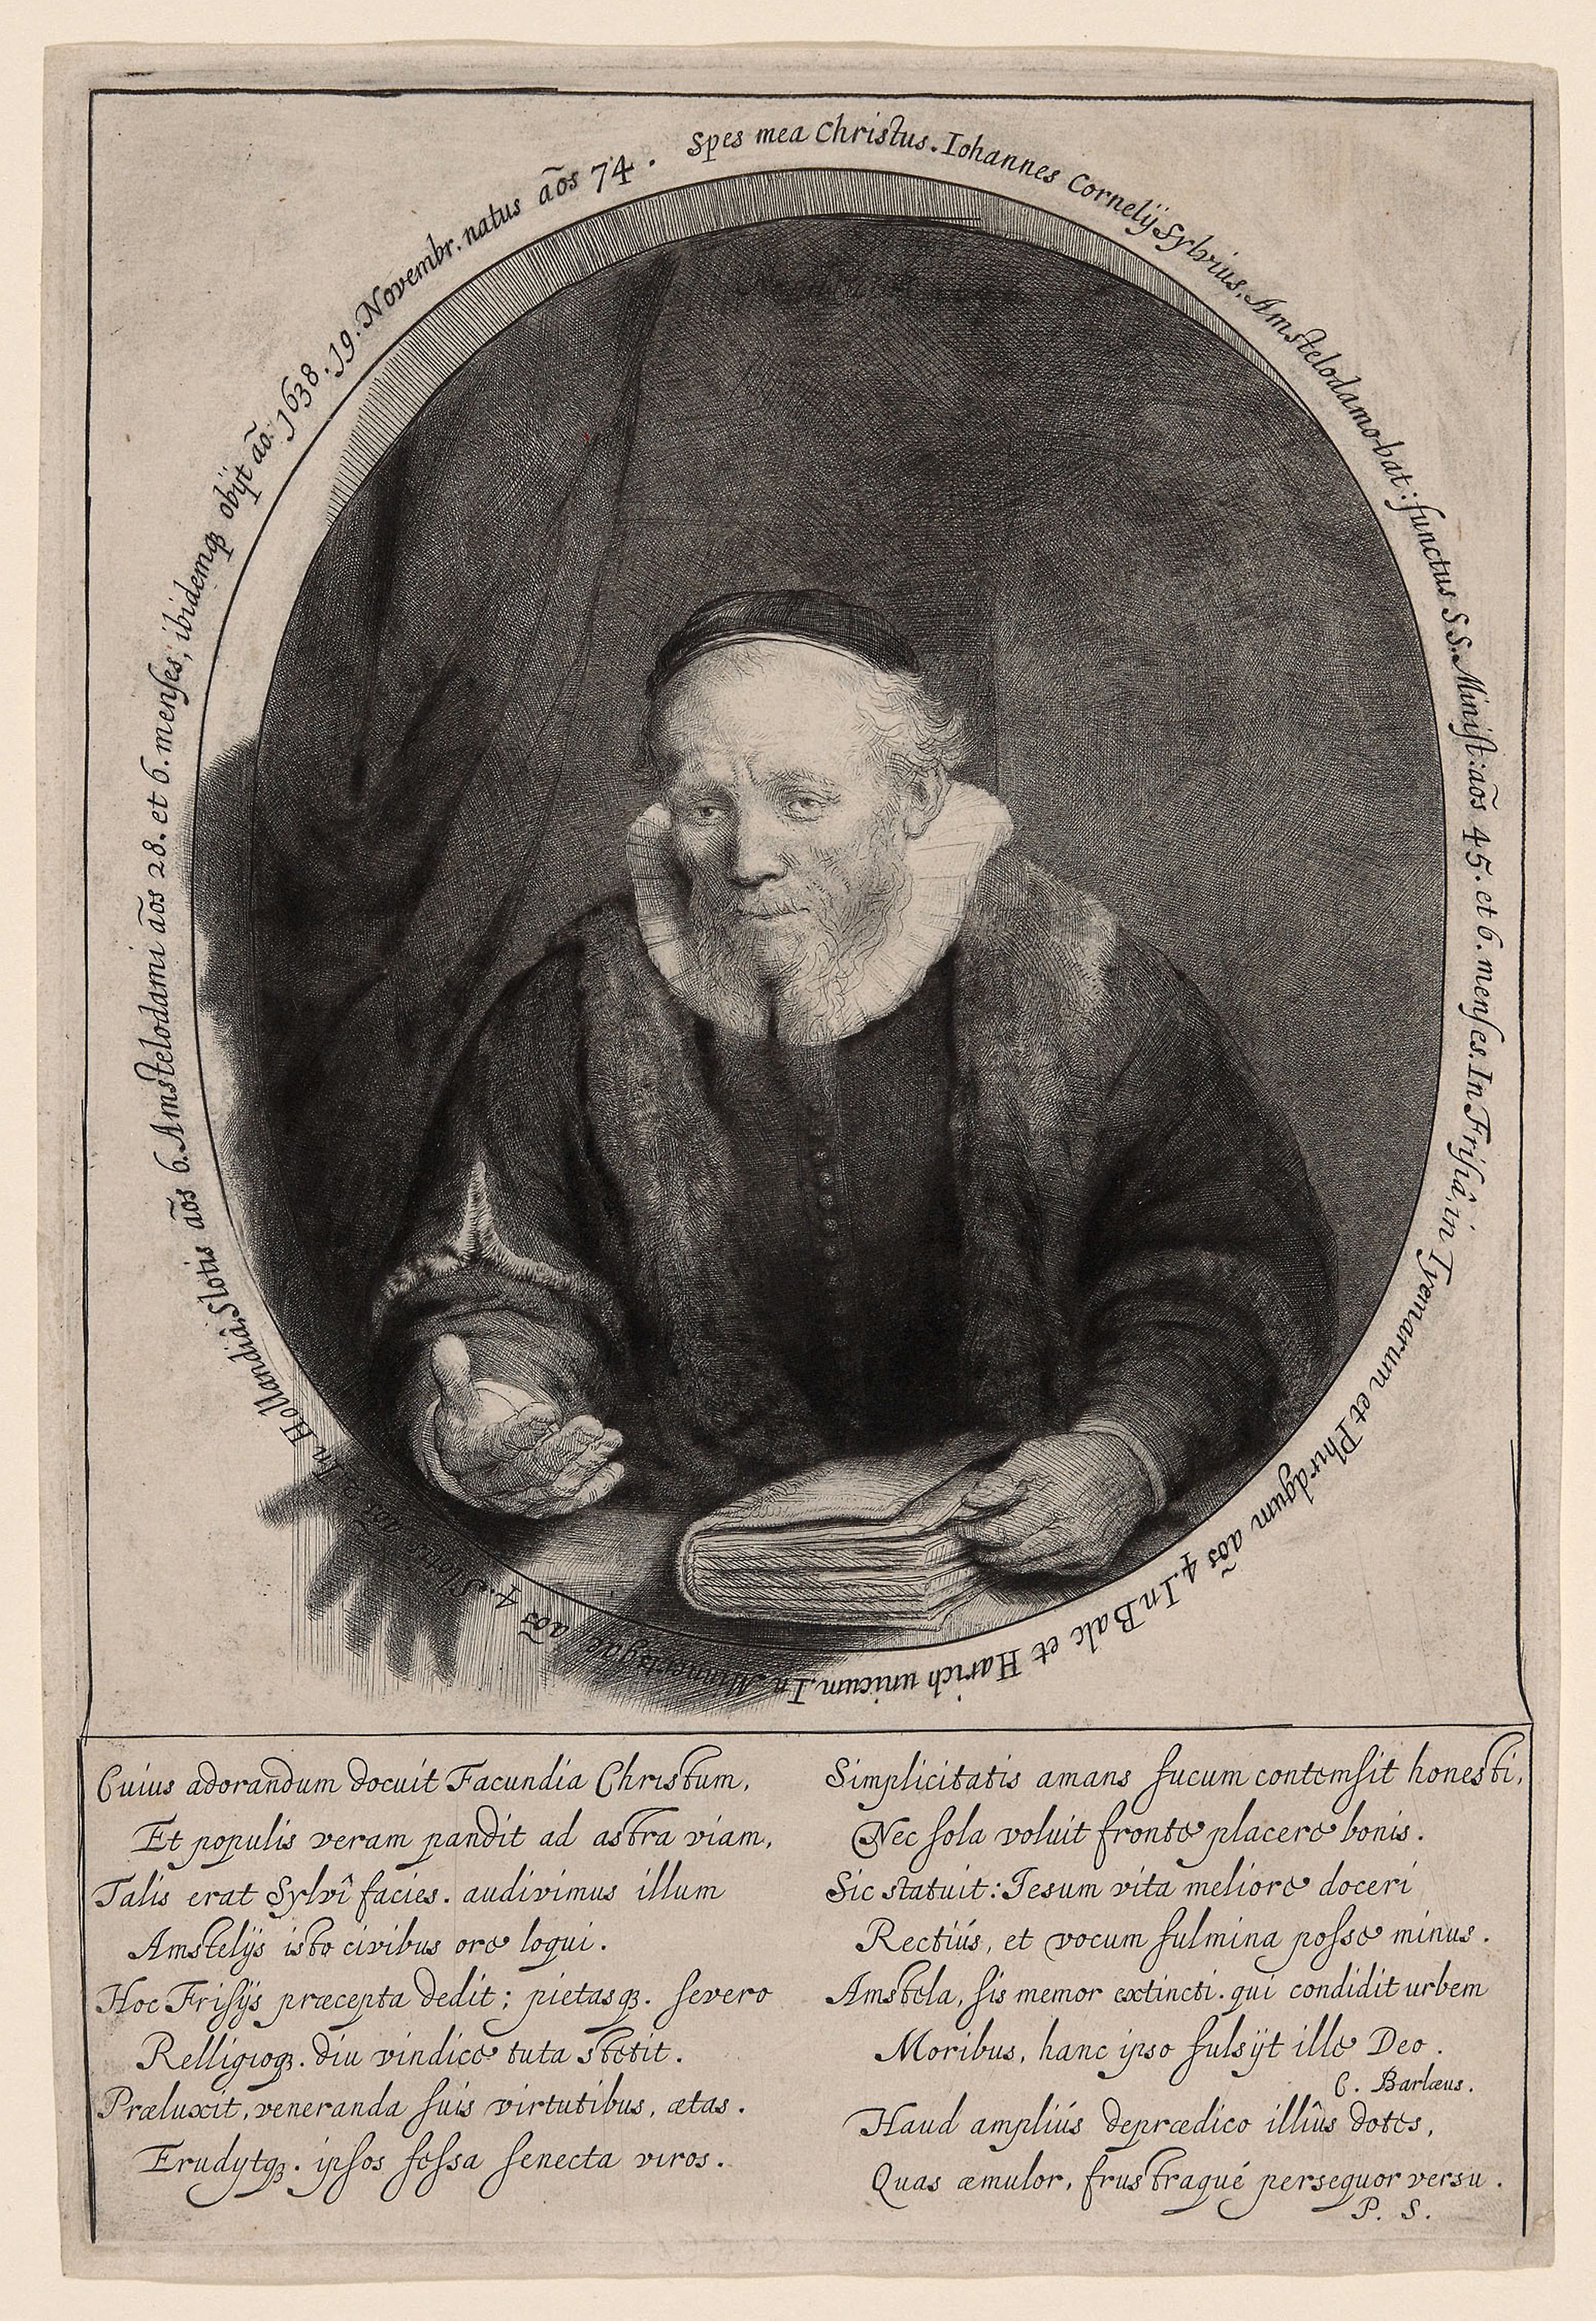 Spes mea Christus. Iohannes Cornelÿ Sylvius, Amstelodamo-bat: functus S S. Minist: ãos 45. et 6. menses. In Frisiâ, in Tyemarum et Phirdgum ãos 4. In Balc et Harich unicum. In Minnertsgae ãos 4. Slotis ãos 2. In Hollandia, Slotis ãos 6. Amstelodami ãos 28. et 6. menses, ibidemqꝫ obÿt ão. 1638. 19. Novembr. natus ãos 74.
Cuius adorandum docuit Facundia Christum,
Et populis veram pandit ad astra viam,
Talis erat Sylvî facies. audivimus illum
Amstelÿs isto civibus ore loqui.
Hoc Frisÿs præcepta dedit; pietasqꝫ. severo
Relligioqꝫ. diu vindice tuta stetit.
Præluxit, veneranda suis virtutibus, ætas.
Erudytqꝫ. ipsos fessa senecta viros.
Simplicitatis amans fucum contemsit honesti,
Nec sola voluit fronte placere bonis.
Sic statuit: Iesum vita meliore doceri
Rectiús, et vocum fulmina posse minus.
Amstela, sis memor extincti. qui condidit urbem
Moribus, hanc ipso fulsÿt ille Deo.
C. Barlæus.
Haud ampliús deprædico illîus dotes,
Quas æmulor, frustraqué persequor versu.
P. S.